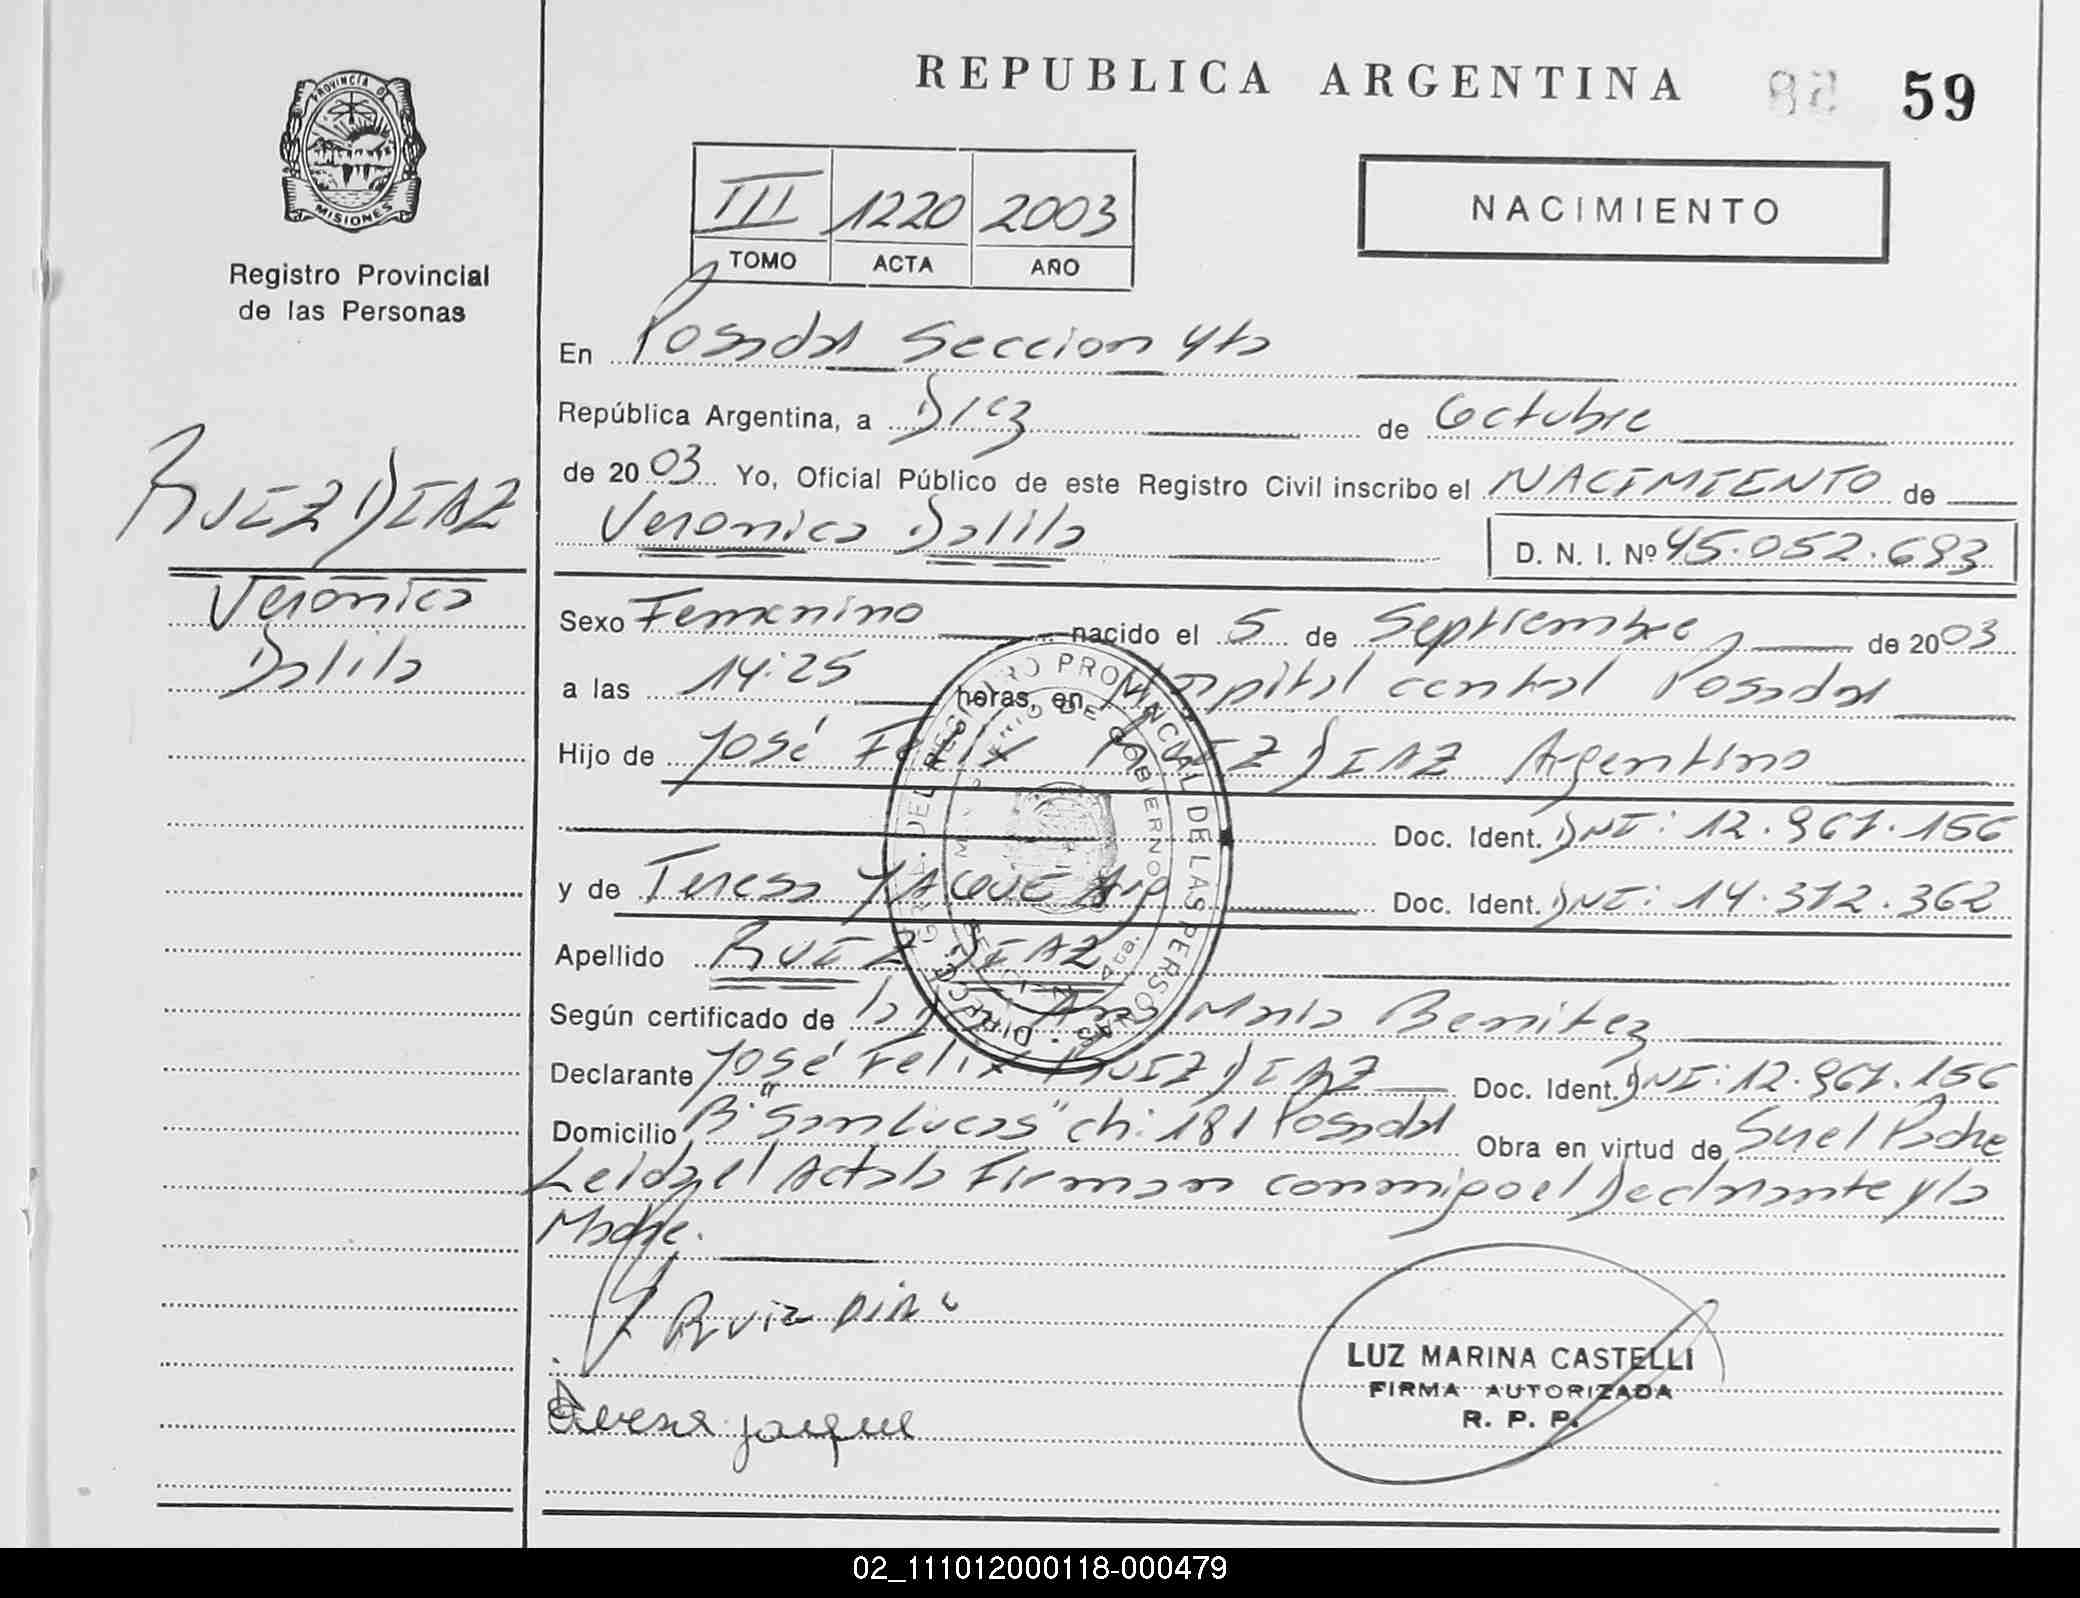 REPUBLICA ARGENTINA
59
PROVINCIA DE
MISIONES
Registro Provincial
de las Personas
III 1220 2003
TOMO ACTA AÑO
NACIMIENTO
En Posadas Seccion 4ta
República Argentina, a Diez de Octubre
de 2003 Yo, Oficial Público de este Registro Civil inscribo el NACIMIENTO de
Veronica Dalila D. N. I. Nº 45.052.693
RUIZ DIAZ
Veronica
Dalila
Sexo Femenino nacido el 5 de Septiembre de 2003
a las 14:25 horas, en Hospital central Posadas
Hijo de José Felix RUIZ DIAZ Argentino
Doc. Ident. DNI: 12.967.156
y de Teresa YAQUE Arg Doc. Ident. DNI: 14.372.362
Apellido RUIZ DIAZ
Según certificado de la Ana Maria Benitez
Declarante José Felix RUIZ DIAZ Doc. Ident. DNI: 12.967.156
Domicilio Bº "San Lucas" ch: 181 Posadas Obra en virtud de Ser el Padre
Leida el Acta la Firman conmigo el Declarante y la
Madre.
RUIZ DIAZ
Teresa jaque
LUZ MARINA CASTELLI
FIRMA AUTORIZADA
R. P. P.
DIRECC. GRAL. DEL REGISTRO PROVINCIAL DE LAS PERSONAS
DE GOBIERNO
4ta.
02_111012000118-000479